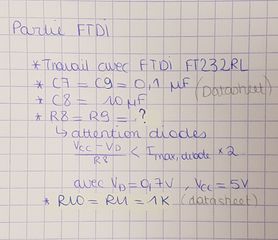 Partie FTDI
* Travail avec FTDI FT232RL
* C7 = C9 = 0,1 µF (Datasheet)
* C8 = 10 µF
* R8 = R9 = ?
↳ attention diodes
(Vcc - VD)/R8 < Imax, diode * 2
avec VD = 0,7V, Vcc = 5V
* R10 = R11 = 1K (datasheet)